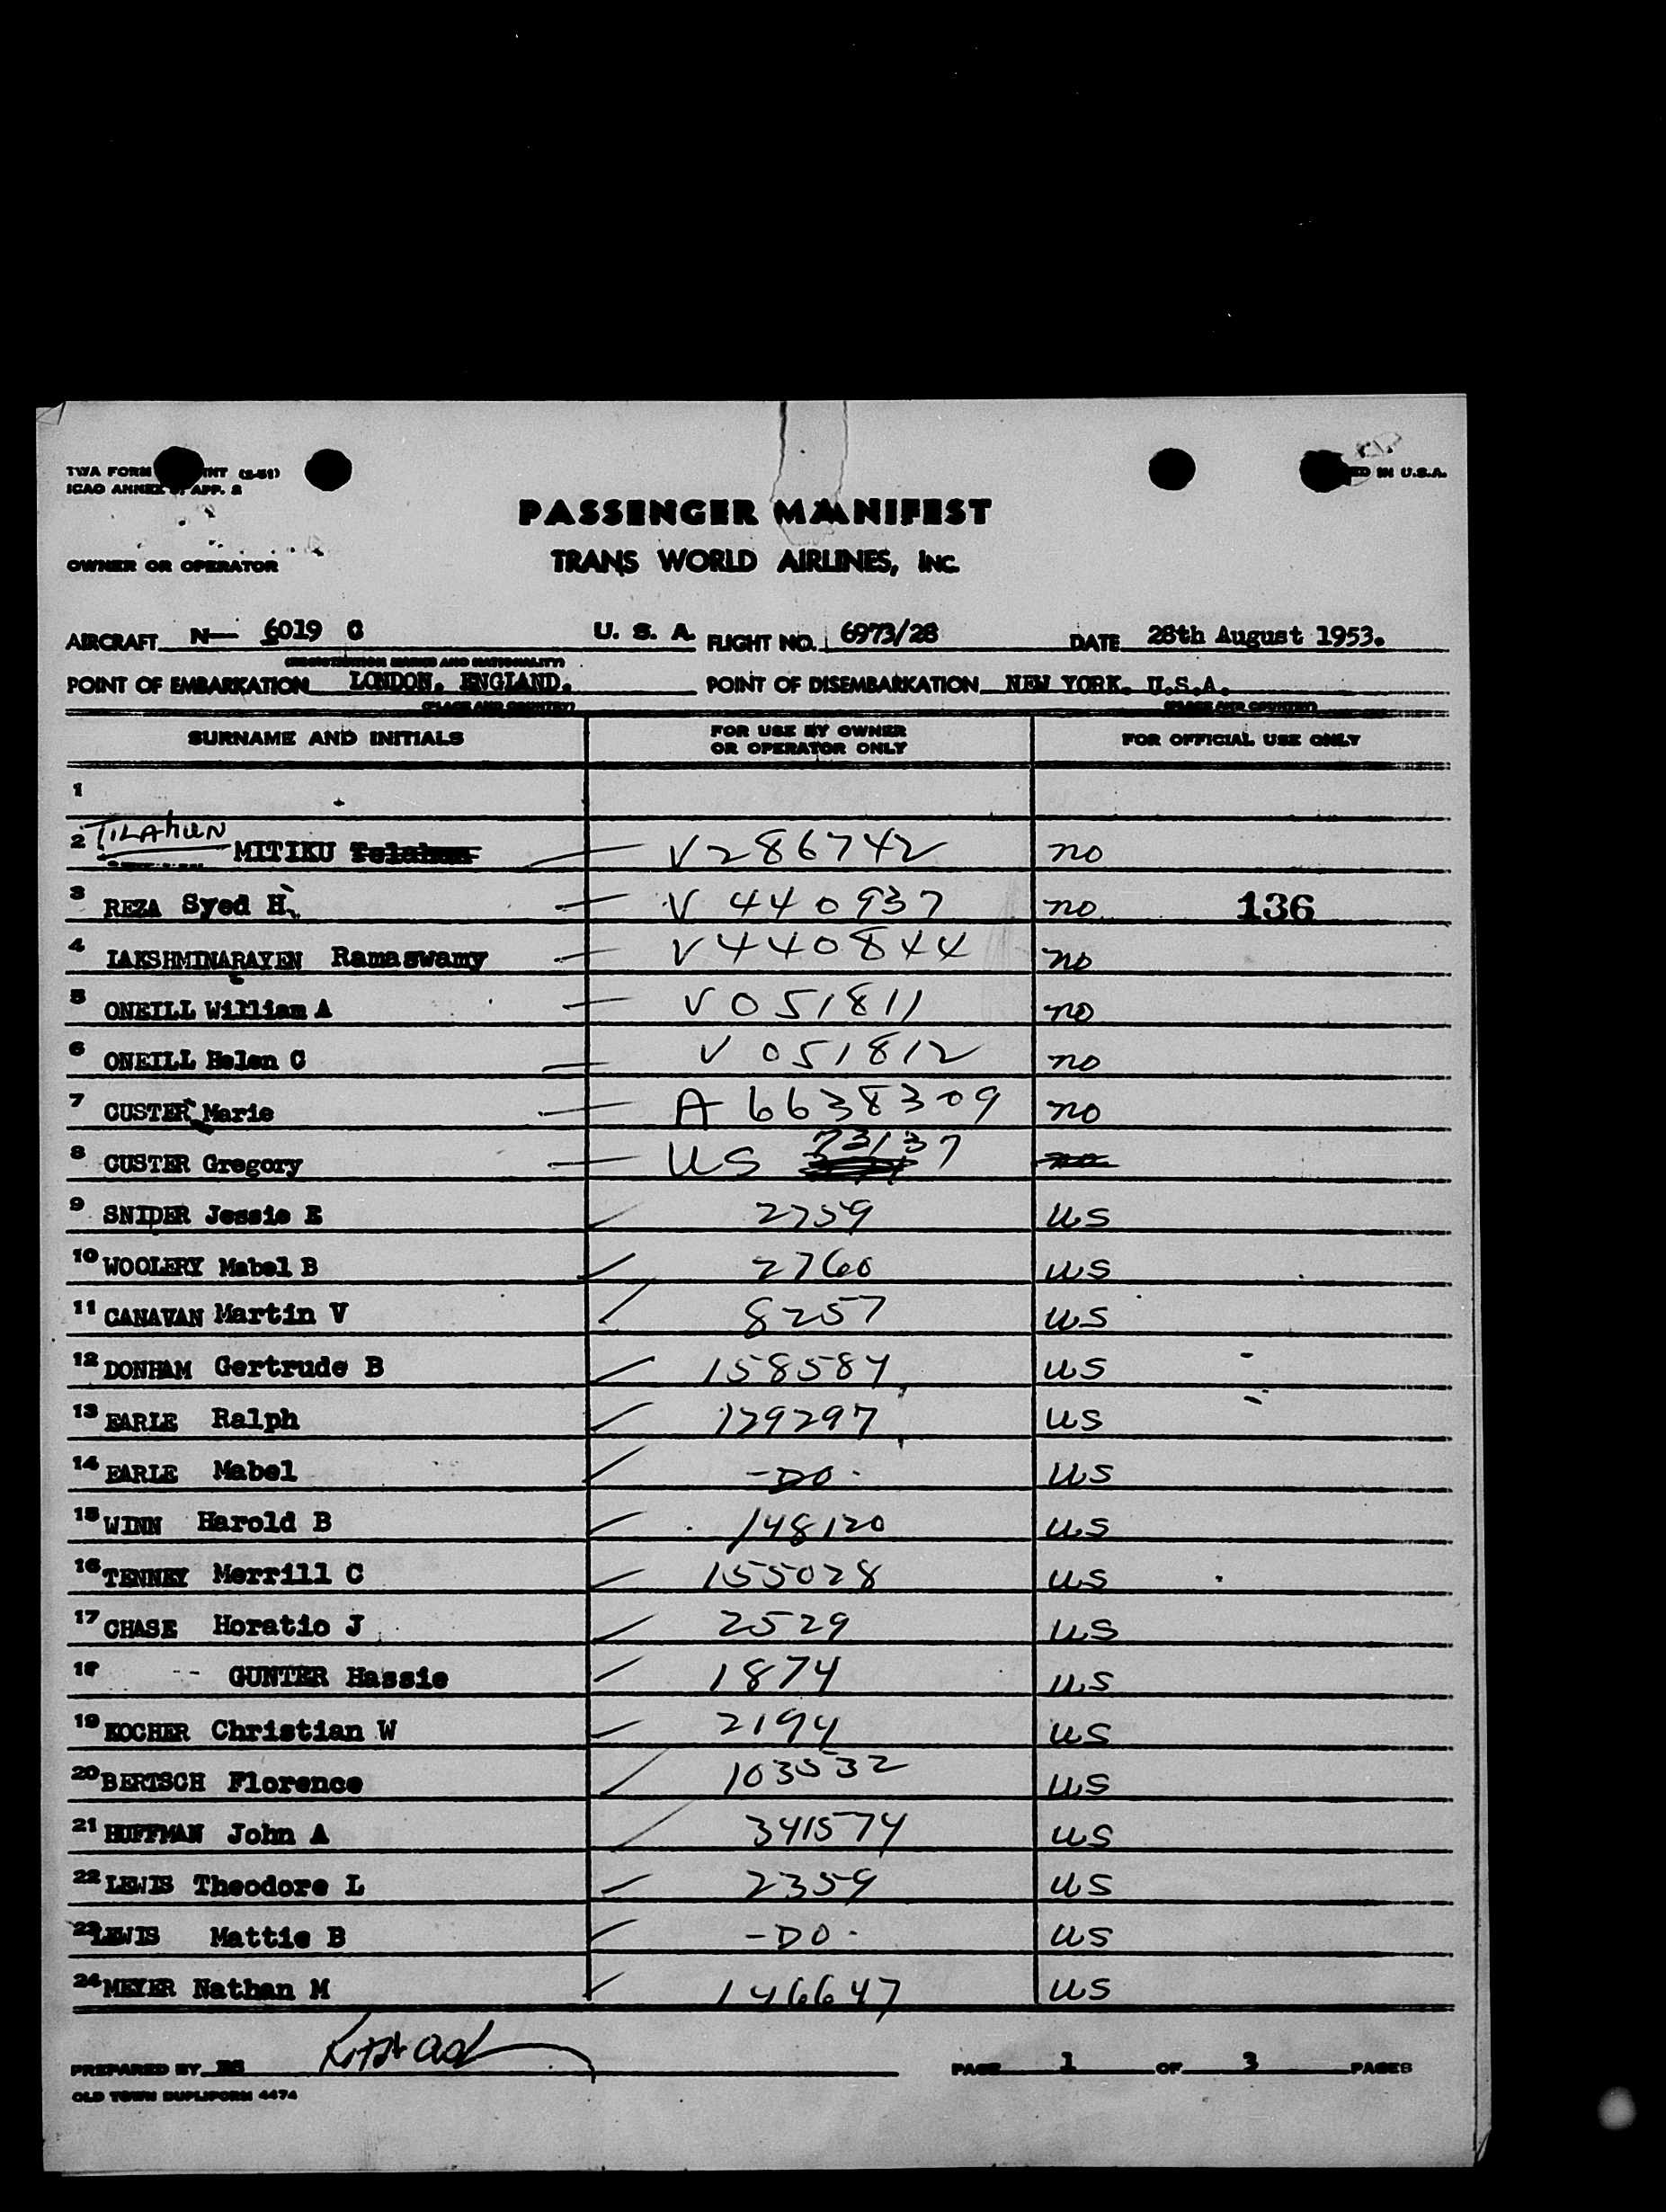 TWA FORM INT (2-51)
ICAO ANNEX 9, APP. 2
ED IN U.S.A.
PASSENGER MANIFEST
OWNER OR OPERATOR TRANS WORLD AIRLINES, INC.
AIRCRAFT N— 6019 C U. S. A. FLIGHT NO. 6973/28 DATE 28th August 1953.
(REGISTRATION MARKS AND NATIONALITY)
POINT OF EMBARKATION LONDON, ENGLAND. POINT OF DISEMBARKATION NEW YORK. U.S.A.
(PLACE AND COUNTRY) (PLACE AND COUNTRY)
SURNAME AND INITIALS FOR USE BY OWNER OR OPERATOR ONLY FOR OFFICIAL USE ONLY
1
2 TILAHUN MITIKU Telahun V286742 no
3 REZA Syed H. V 440937 no 136
4 LAKSHMINARAYEN Ramaswamy V440844 no
5 ONEILL William A V051811 no
6 ONEILL Helen C V 051812 no
7 CUSTER Marie A 6638309 no
8 CUSTER Gregory US 73137 no
9 SNIDER Jessie E 2759 US
10 WOOLERY Mabel B 2760 US
11 CANAVAN Martin V 8257 US
12 DONHAM Gertrude B 158584 US
13 EARLE Ralph 129297 US
14 EARLE Mabel -DO- US
15 WINN Harold B 148120 US
16 TENNEY Merrill C 155028 US
17 CHASE Horatio J 2529 US
18 -- GUNTER Hassie 1874 US
19 KOCHER Christian W 2194 US
20 BERTSCH Florence 103532 US
21 HUFFMAN John A 341574 US
22 LEWIS Theodore L 2359 US
23 LEWIS Mattie B -DO- US
24 MEYER Nathan M 146647 US
PREPARED BY PAGE 1 OF 3 PAGES
OLD TOWN DUPLIFORM 4474